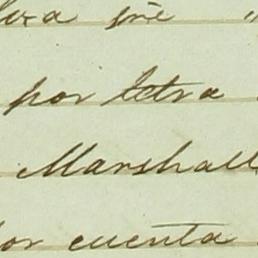 por letra
Marshall
por cuenta